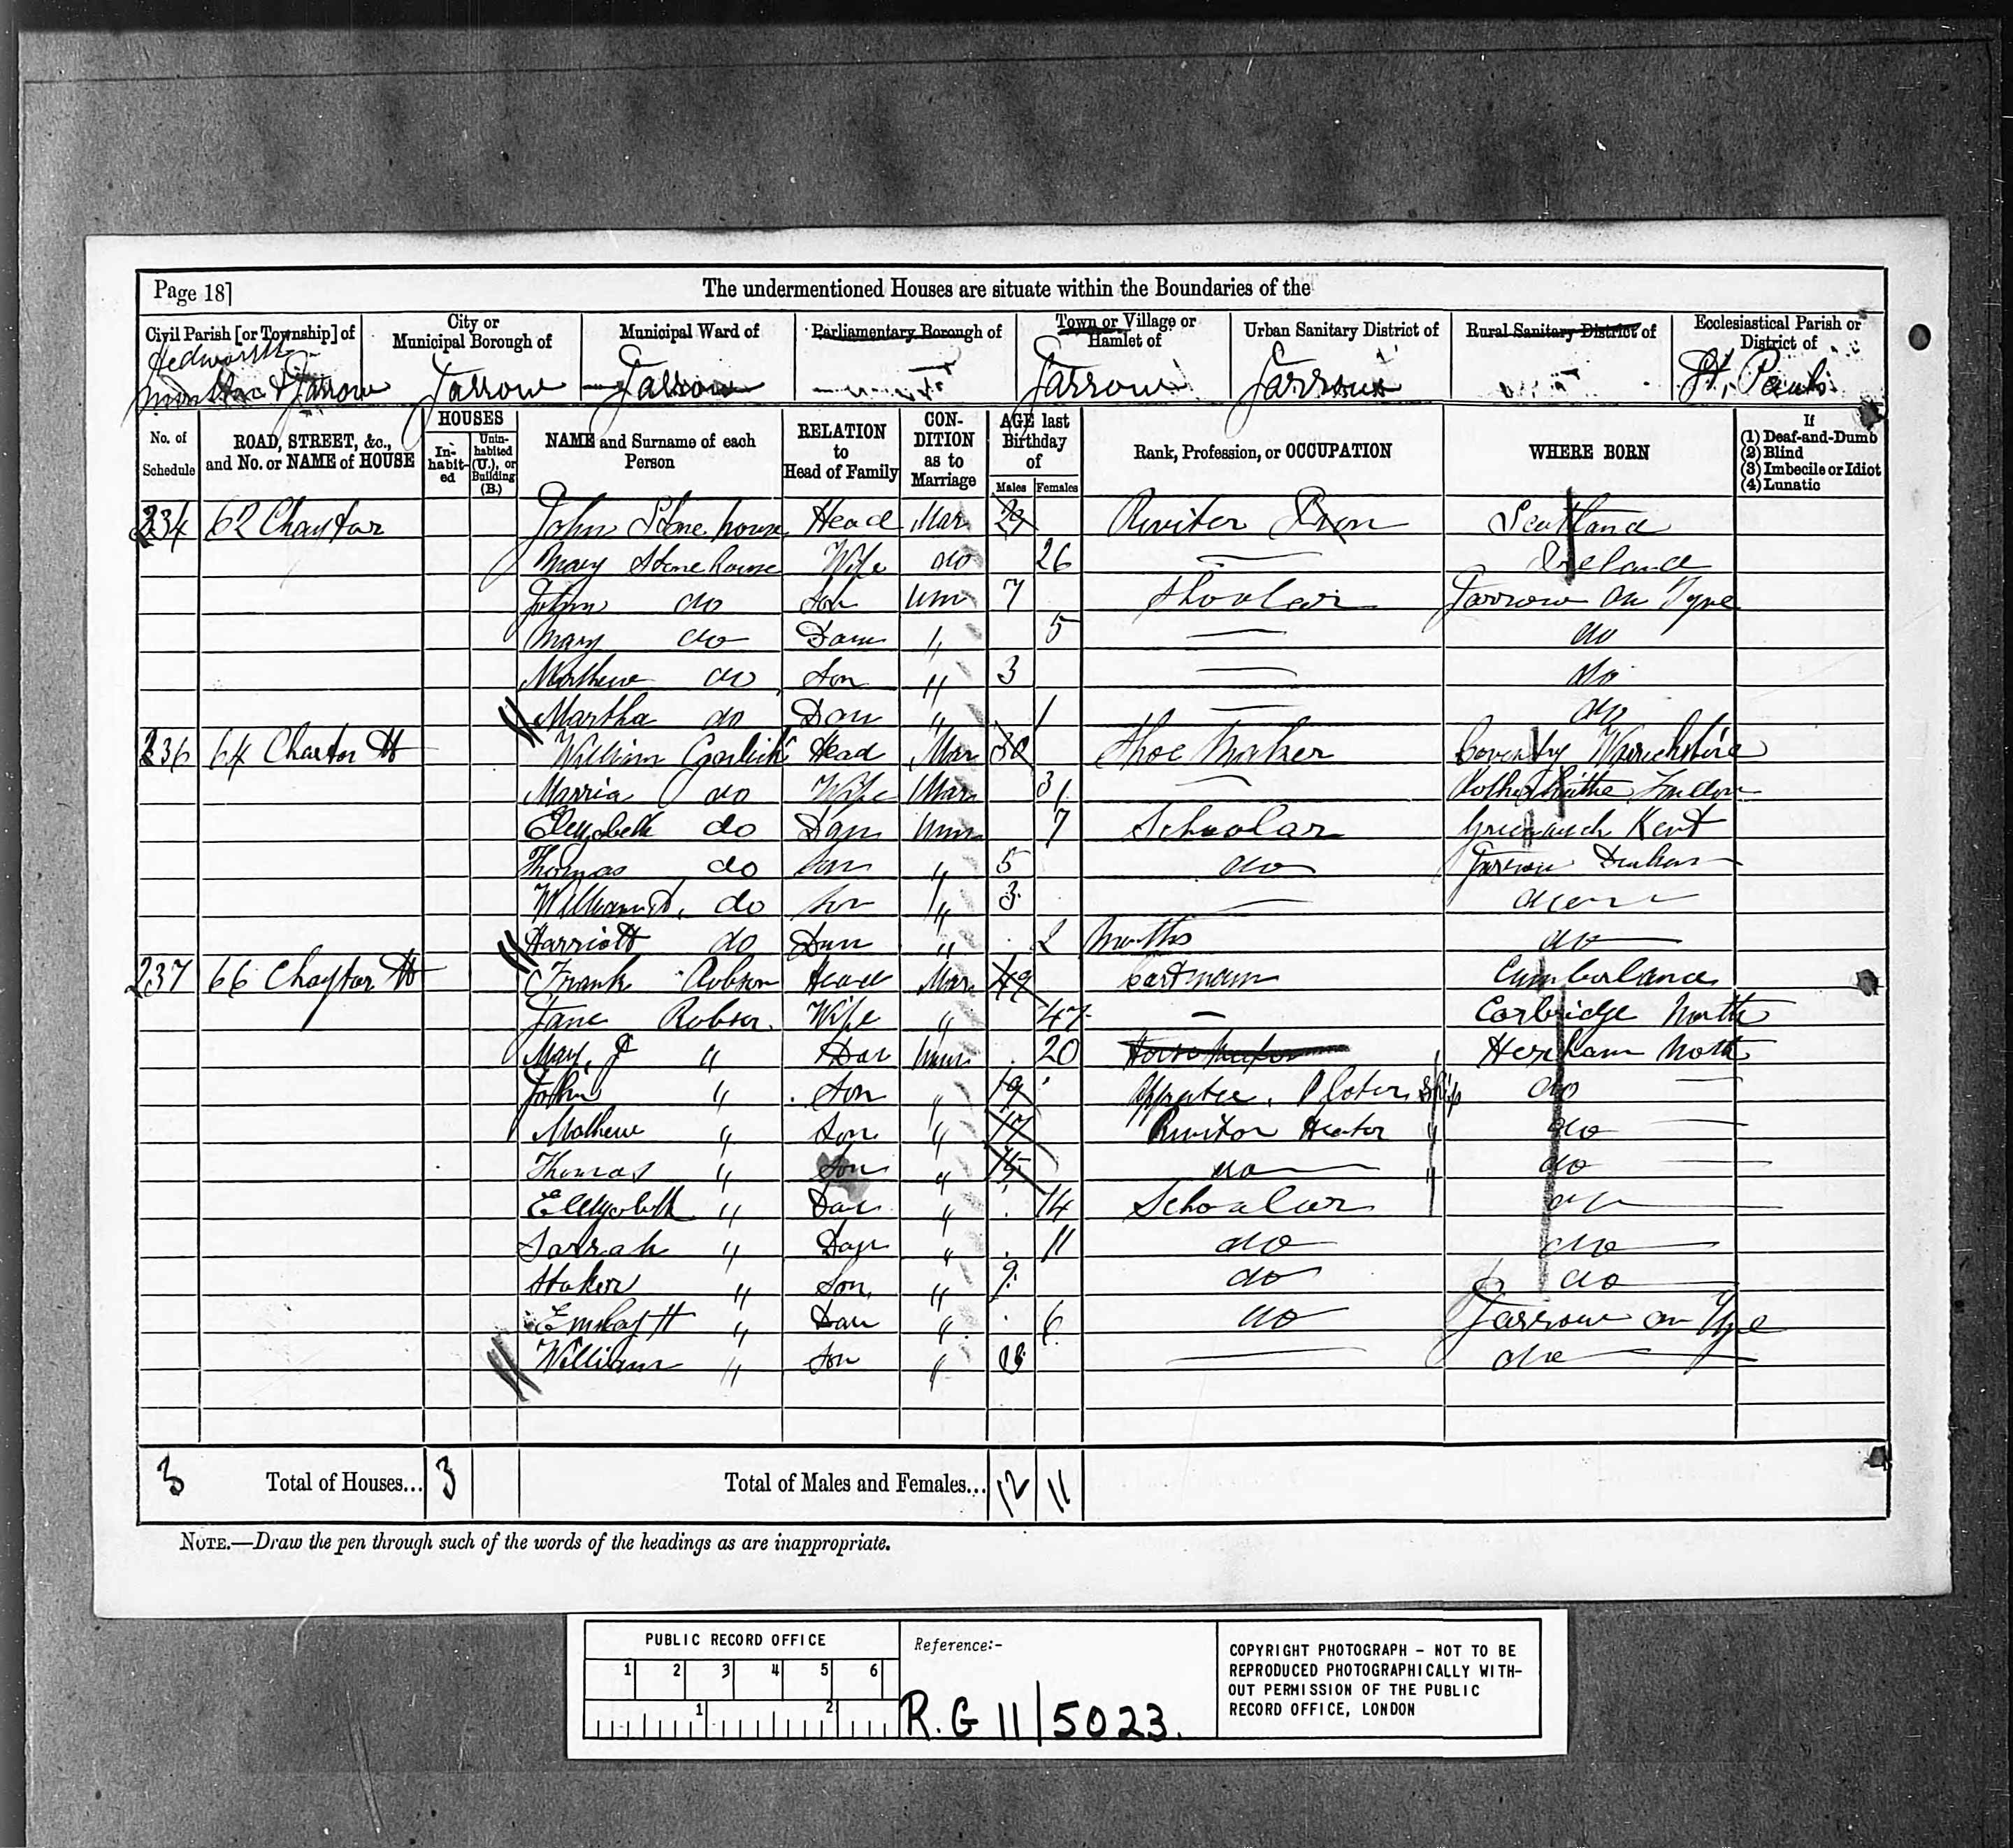 Page 18]
The undermentioned Houses are situate within the Boundaries of the
Civil Parish [or Township] of
City or Municipal Borough of
Municipal Ward of
Parliamentary Borough of
Town or Village or Hamlet of
Urban Sanitary District of
Rural Sanitary District of
Ecclesiastical Parish or District of
Hedworth
Monkton & Jarrow Jarrow Jarrow Jarrow Jarrow St. Pauls
No. of Schedule
ROAD, STREET, &c., and No. or NAME of HOUSE
HOUSES
In-habit-ed
Unin-habited (U.), or Building (B.)
NAME and Surname of each Person
RELATION to Head of Family
CON-DITION as to Marriage
AGE last Birthday of
Males Females
Rank, Profession, or OCCUPATION
WHERE BORN
If
(1) Deaf-and-Dumb
(2) Blind
(3) Imbecile or Idiot
(4) Lunatic
234 62 Chaytor John Stonehouse Head Mar 29 Riviter Iron Scotland
Mary Stonehouse Wife do 26 Ireland
John do Son Unm 7 Shoolar Jarrow on Tyne
Mary do Daur " 5 do
Mathew do Son " 3 do
Martha do Dau " 1 do
236 64 Chaytor St William Garlick Head Mar 30 Shoe Maker Coventry Warickshire
Marria do Wife Mar 31 Rotherhithe London
Elizabeth do Daur Unm 7 Schoolar Greenwich Kent
Thomas do Son " 5 do Jarrow Durham
William do Son " 3
Harriott do Daur " 2 Months do
237 66 Chaytor St Frank Robson Head Mar 49 Cartman Cumberland
Jane Robson Wife " 47 Corbridge North
Mary J " Dau Unm 20 Hexham North
John " Son " 19 Apprntce Plater Ship do
Mathew " Son " 17 Rivitor Heator " do
Thomas " Son " 15 do " do
Ellizabeth " Dau " 14 Schoalar do
Sarrah " Daur " 11 do do
" Son " 9 do do
" Dau " 6 do Jarrow on Tyne
William " Son " do
3 Total of Houses... 3 Total of Males and Females... 12 11
NOTE.—Draw the pen through such of the words of the headings as are inappropriate.
PUBLIC RECORD OFFICE
1 2 3 4 5 6
1 2
Reference:-
R.G 11/5023.
COPYRIGHT PHOTOGRAPH - NOT TO BE
REPRODUCED PHOTOGRAPHICALLY WITH-
OUT PERMISSION OF THE PUBLIC
RECORD OFFICE, LONDON